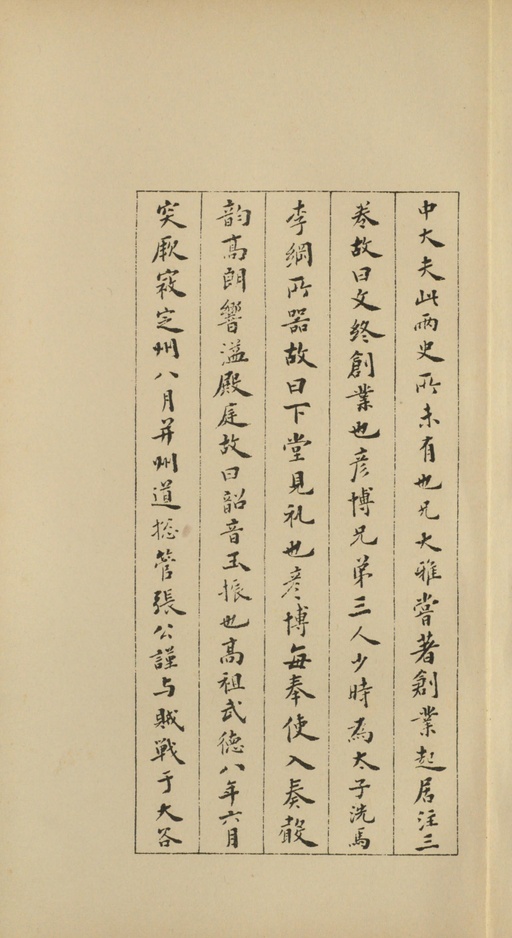 中大夫此两史所未有也兄大雅嘗著創業起居注三
卷故曰文終創業也彦博兄弟三人少時為太子洗馬
李綱所器故曰下堂見礼也彦博每奉使入奏聲
韵高朗響溢殿庭故曰韶音玉振也高祖武德八年六月
突厥寇定州八月并州道揔管張公謹与贼戦于大谷